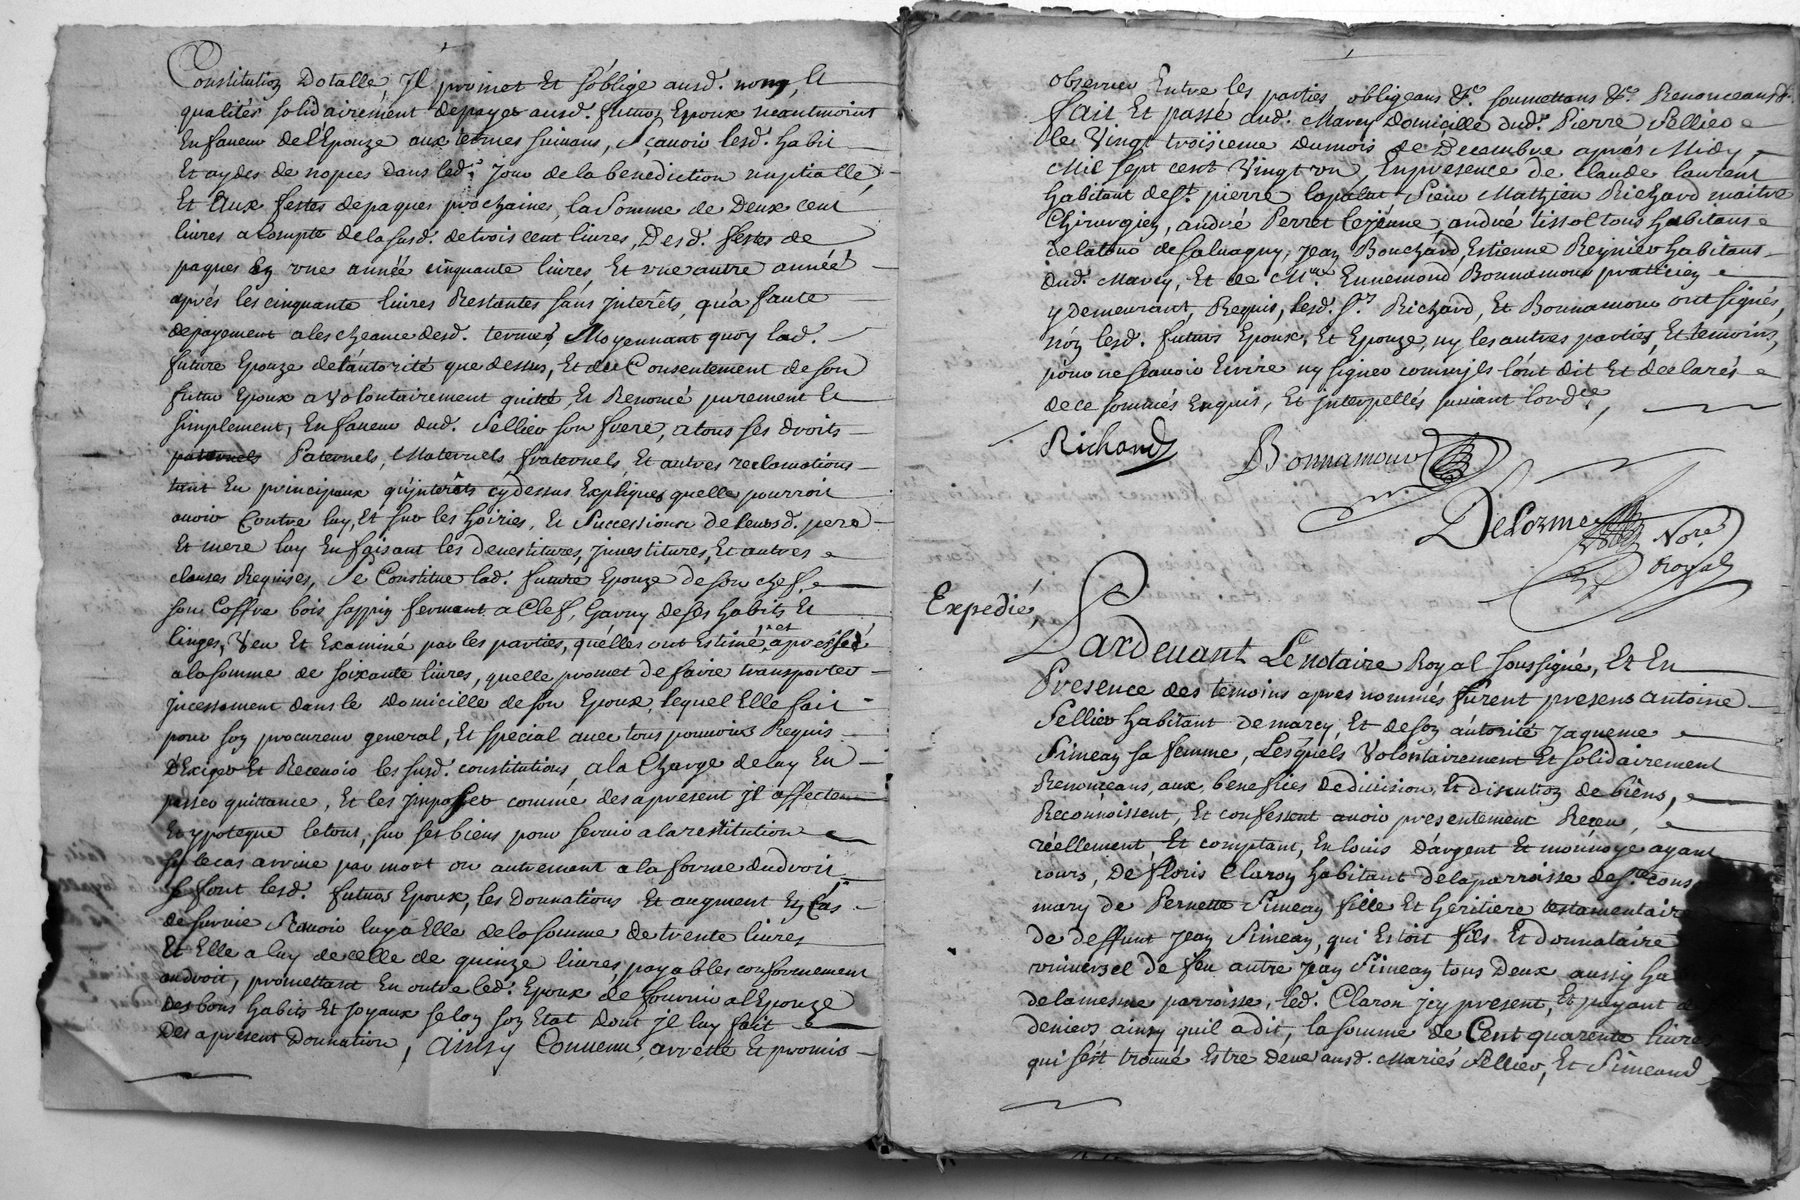 Constitution Dotalle, Jl promet Et s'oblige ausd. noms, Et
qualités solidairement de payer ausd. futurs Epoux neantmoins
En faveur de l'Epouze aux termes suivans, Sçavoir lesd. habit
Et aydes de nopces dans led. jour de la benediction nuptialle,
Et Aux festes de paques prochaines, la somme de Deux cent
livres a Compte de la susd. de trois cent livres, Desd. festes de
paques En une année cinquante livres, Et une autre année
aprés les cinquante livres Restantes sans jnterêts, qu'a faute
de payement a les cheance desd. termes, Moyennant quoy lad.
future Epouze de l'autorité que dessus, Et du Consentement de son
futur Epoux a Volontairement quitté, Et Renoncé purement Et
simplement, En faveur dud. Sellier son frere, a tous ses droits
paternels Paternels, Maternels fraternels, Et autres reclamations
tant En principaux qu'jnterêts cy dessus Expliques quelle pourroit
avoir Contre luy, Et sur les hoiries, Et Successions de leursd. pere
Et mere luy En faisant les devestitures, jnvestitures, Et autres
clauses Requises, Se Constitue lad. future Epouze de son chef,
son Coffre bois sappin fermant a Clef, Garny de ses habits Et
linges, Veu Et Examiné par les parties, qu'elles ont Estimé, apressié
a la somme de soixante livres, quelle promet de faire transporter
jncessament dans le Domicille de son Epoux, lequel Elle fait
pour son procureur general, Et special avec tous pouvoirs Requis
d'Exiger Et Recevoir les susd. constitutions, a la Charge de luy En
passer quittance, Et les jmposer comme des apresent jl affecte
Et ypoteque le tout, sur ses biens pour servir a la restitution
sy le cas arrive par mort ou autrement a la forme du droit
se font lesd. futurs Epoux, les Donnations Et augment En Cas
de survie Scavoir luy a Elle de la somme de trente livres
Et Elle a luy de celle de quinze livres, payables conformement
au droit, promettant En outre led. Epoux de fournir a l'Epouze
Des bons habits Et joyaux selon son Etat Dont jl luy fait
Des apresent Donnation, Ainsy Convenu, arretté Et promis
observer Entre les parties, obligeans &c. soumettans &c. Renonceans &c.
fait Et passé aud. Marcy Domicille dud. Pierre Sellier
le Vingt troisieme du mois de Decembre apres Midy,
Mil sept cent Vingt un, En presence de Claude laurent
habitant de St. pierre lapalut Sieur Mathieu Richard maitre
Chirurgien, andré Perret lejeune, andré tissot tous habitans
de latour de salvagny, Jean Bouchard, Estienne Reynier habitans
dud. Marcy, Et de Me. Ennemond Bonnamour pratticien
y demeurant, Requis, lesd. Srs. Richard, Et Bonnamour ont signés,
nón lesd. futurs Epoux, Et Epouze, ny les autres parties, Et temoins,
pour ne sçavoir Ecrire ny signer comm'jls l'ont dit Et declarés
de ce sommés Enquis, Et jnterpellés suivant l'ord.ce
Richard Bonnamour
Delorme Nore.
Royal
Expedié,
Pardevant Le notaire Royal soussigné, Et En
Presence des temoins apres nommés furent presens antoine
Sellier habitant de marcy, Et de son autorité Jaqueme
Simean sa femme, Lesquels Volontairement Et solidairement
Renonceans, aux benefices de division, Et discution de biens,
Reconnoissent, Et confessent avoir presentement Receu
réellement, Et comptant, En louis d'argent Et monnoye ayant
cours, De floris Claron habitant de la parroisse de St. Cons
mary de Pernette Simean fille Et heritiere testamentair
de deffunt Jean Simean, qui Estoit fils Et donnataire
universel de feu autre Jean Simean tous Deux aussy ha
de la mesme parroisse, led. Claron jcy present, Et payant d
deniers ainsy quil a dit, la somme de Cent quarente livres
qui s'est trouvé Estre deue ausd. Mariés Sellier, Et Simeand